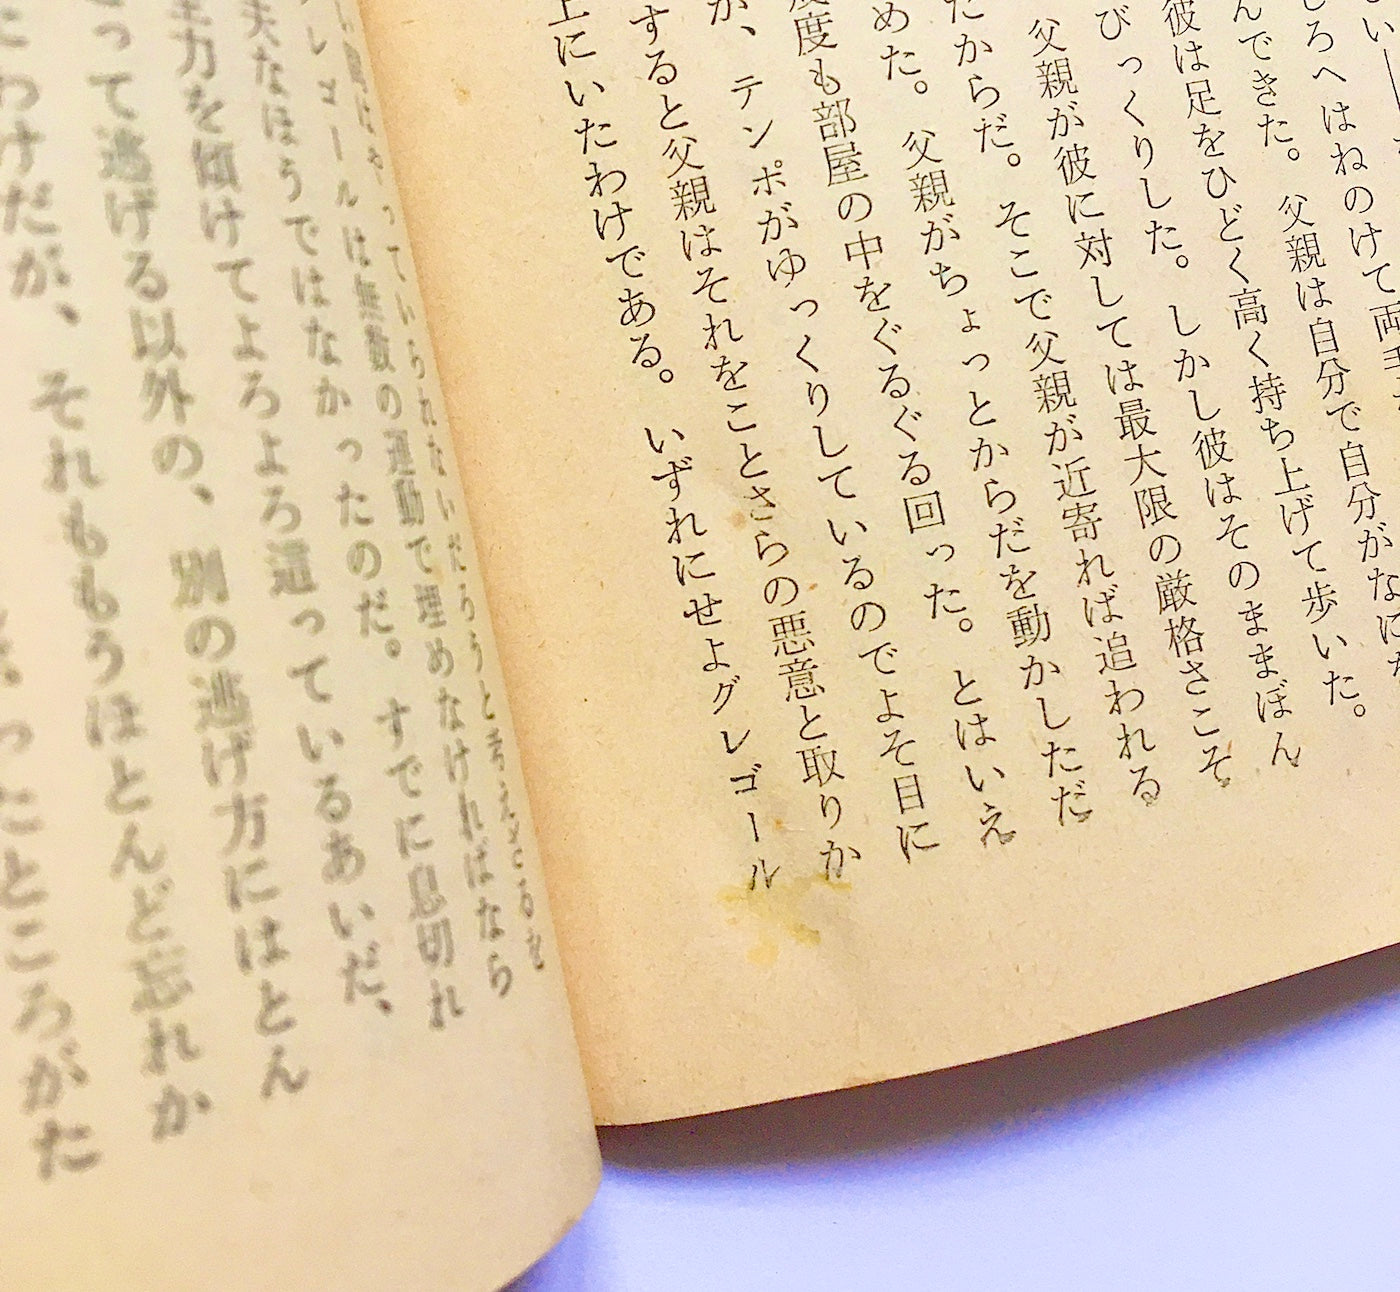 しろへはねのけて両手
んできた。父親は自分で自分がなに
彼は足をひどく高く持ち上げて歩いた。
びっくりした。しかし彼はそのままぼん
父親が彼に対しては最大限の厳格さこそ
たからだ。そこで父親が近寄れば追われる
めた。父親がちょっとからだを動かしただ
度も部屋の中をぐるぐる回った。とはいえ
が、テンポがゆっくりしているのでよそ目に
すると父親はそれをことさらの悪意と取りか
上にいたわけである。いずれにせよグレゴール
っていられないだろうと考えざるを
レゴールは無数の運動で埋めなければなら
夫なほうではなかったのだ。すでに息切れ
全力を傾けてよろよろ這っているあいだ、
って逃げる以外の、別の逃げ方にはとん
わけだが、それももうほとんど忘れか
たところがた